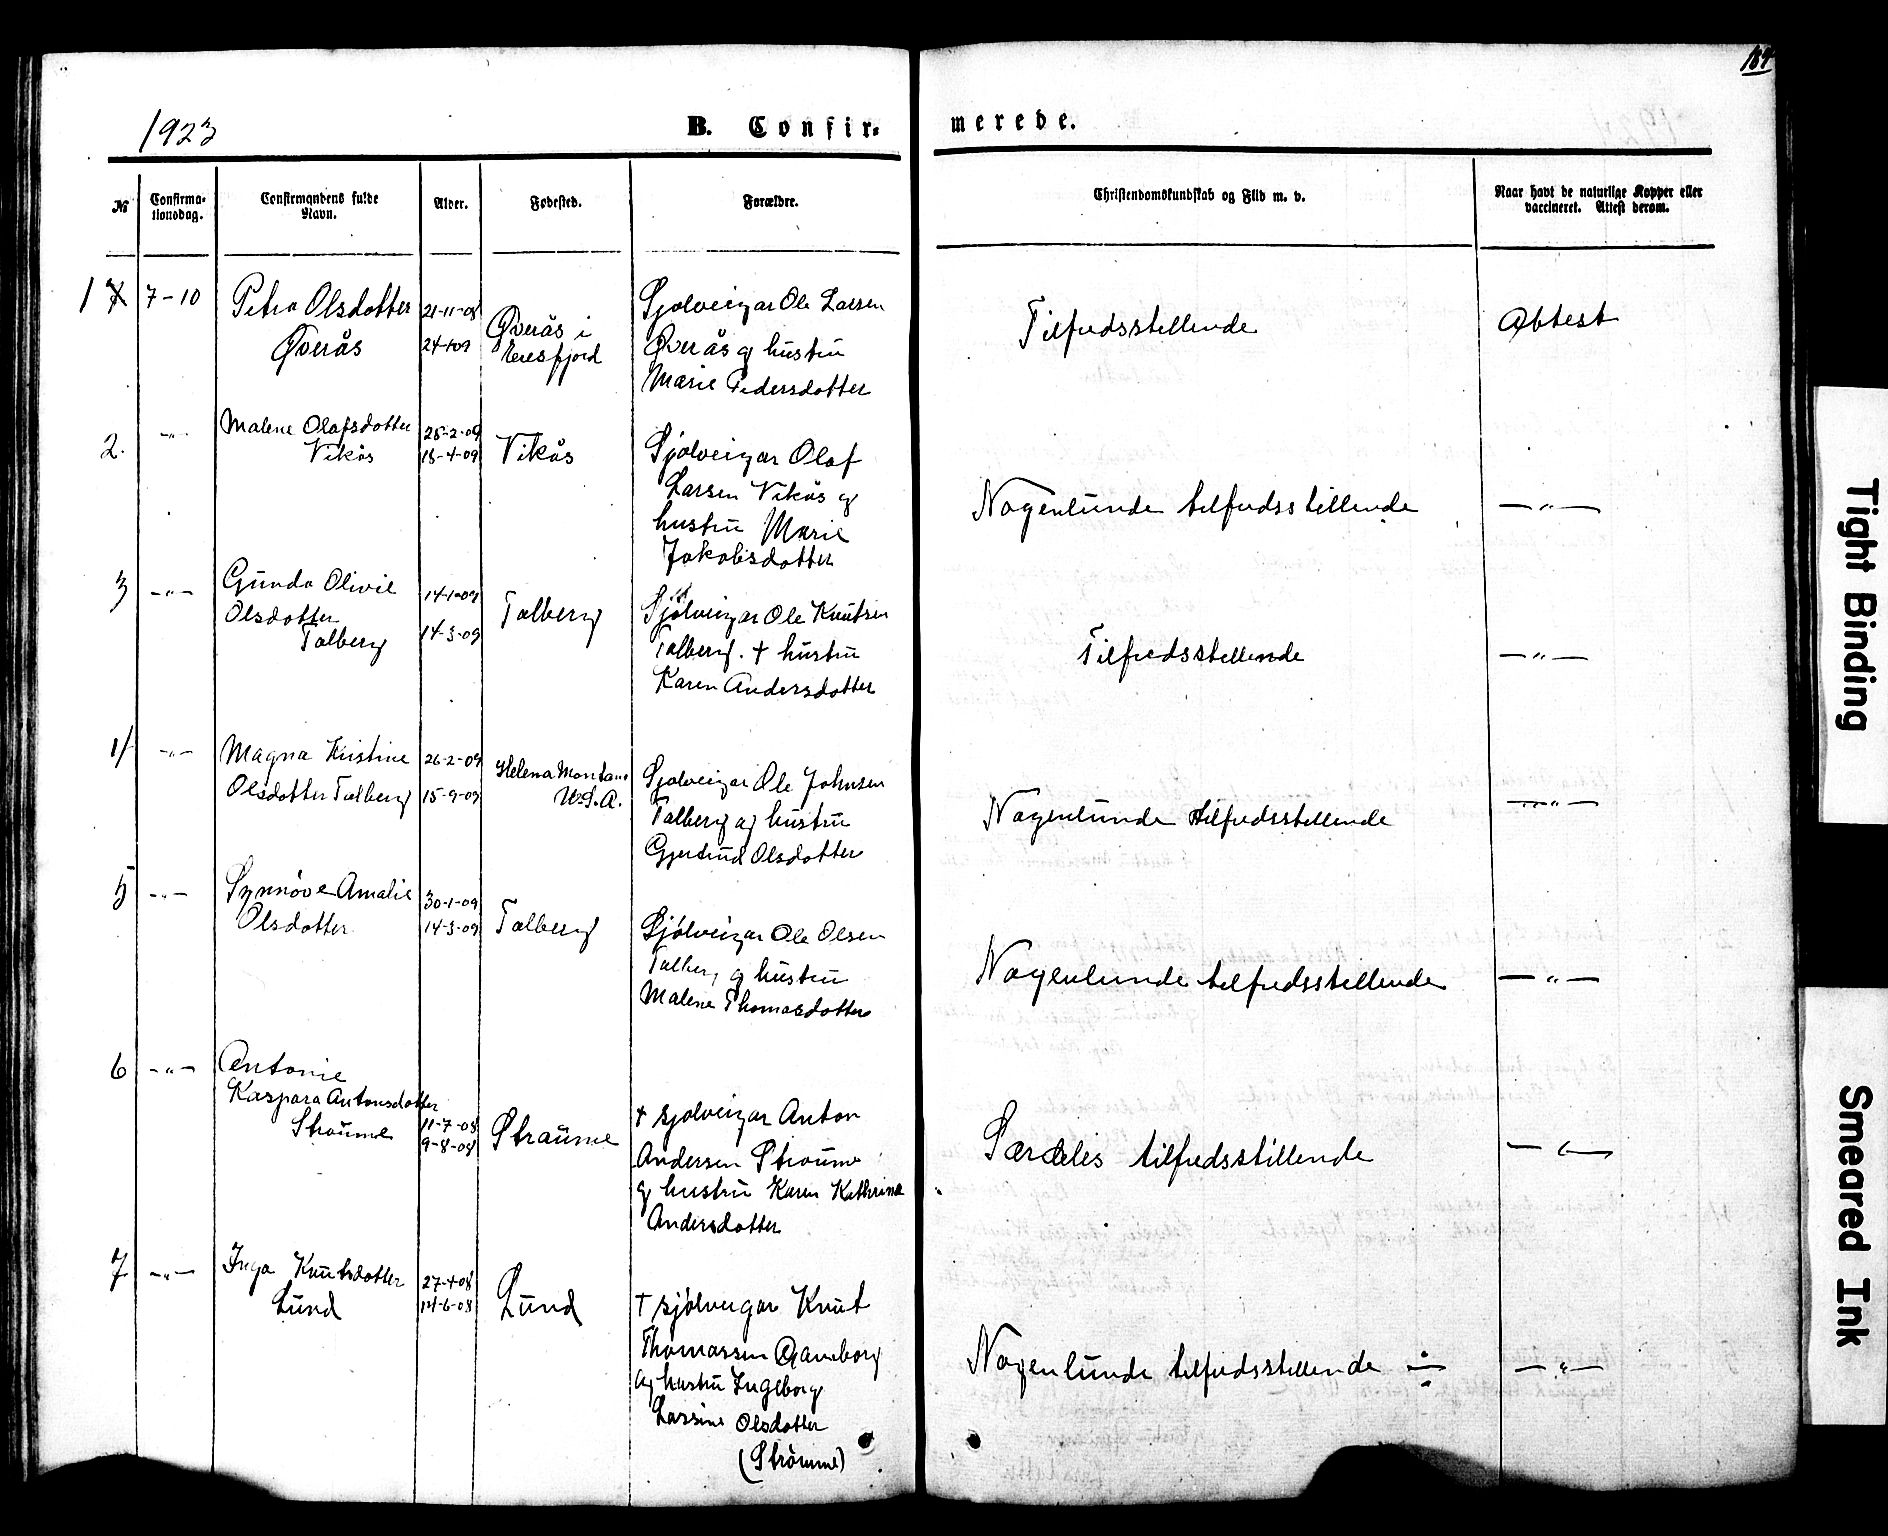 184
1923
B. Confir-
merede.
№
Confirma-
tionsdag.
Confirmandens fulde
Navn.
Alder.
Fødested.
Forældre.
Christendomskundskab og Flid m. v.
Naar havt de naturlige Kopper eller
vaccineret. Attest derom.
1 7-10 Petra Olsdotter
Øverås
21-11-08
24-1-09
Øverås i
Eresfjord
Sjølveigar Ole Larsen
Øverås og hustru
Marie Pedersdotter
Tilfredsstillende
Attest
2. -"- Malene Olafsdotter
Vikås
28-2-09
18-4-09
Vikås
Sjølveigar Olaf
Larsen Vikås og
hustru Marie
Jakobsdotter
Nogenlunde tilfredsstillende
-"-
3 -"- Gunda Olivie
Olsdotter
Talberg
14-1-09
14-3-09
Talberg
Sjølveigar Ole Knutsen
Talberg. + hustru
Karen Andersdotter
Tilfredsstillende
-"-
4 -"- Magna Kristine
Olsdotter Talberg
26-2-09
15-9-09
Helena Montana
U.S.A.
Sjølveigar Ole Johnsen
Talberg og hustru
Gjertrud Olsdotter
Nogenlunde tilfredsstillende
-"-
5 -"- Synnøve Amalie
Olsdotter
30-1-09
14-3-09
Talberg
Sjølveigar Ole Olsen
Talberg og hustru
Malene Thomasdotter
Nogenlunde tilfredsstillende
-"-
6 -"- Antonie
Kaspara Antonsdotter
Straume
11-7-08
9-8-08
Straume
+ sjølveigar Anton
Andersen Straume
og hustru Karen Kathrine
Andersdotter
Særdeles tilfredsstillende
-"-
7 -"- Inga Knutsdotter
Lund
27-4-08
14-6-08
Lund
+ sjølveigar Knut
Thomassen
og hustru Ingeborg
Lassine Olsdotter
(Strømme)
Nogenlunde tilfredsstillende ÷
-"-
Tight Binding
Smeared Ink